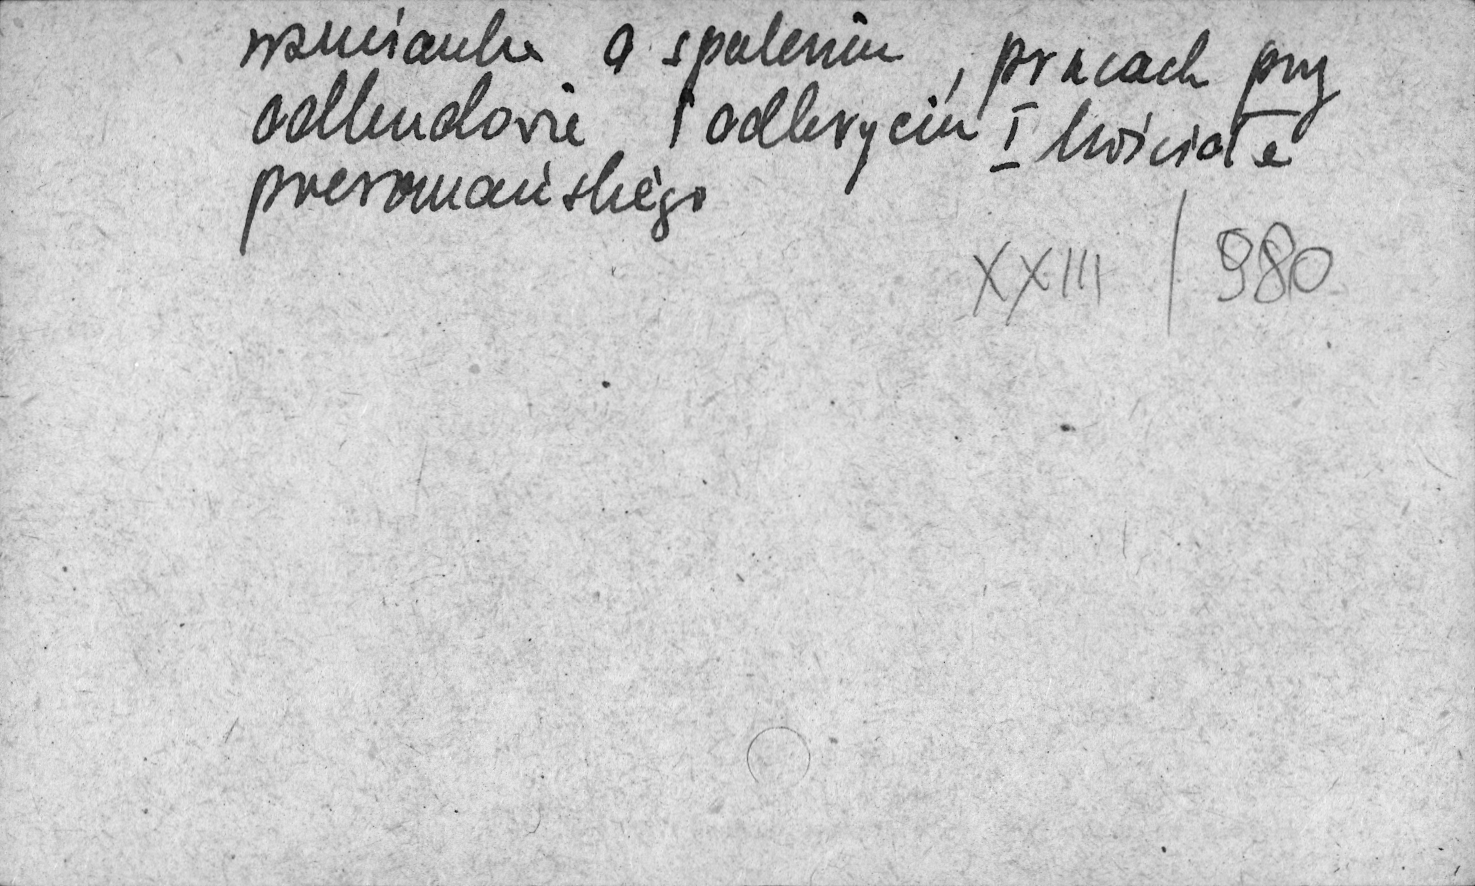 wzmianka o spaleniu, pracach przy
odbudowie i odkryciu I kościoła
preromańskiego
XXIII / 980